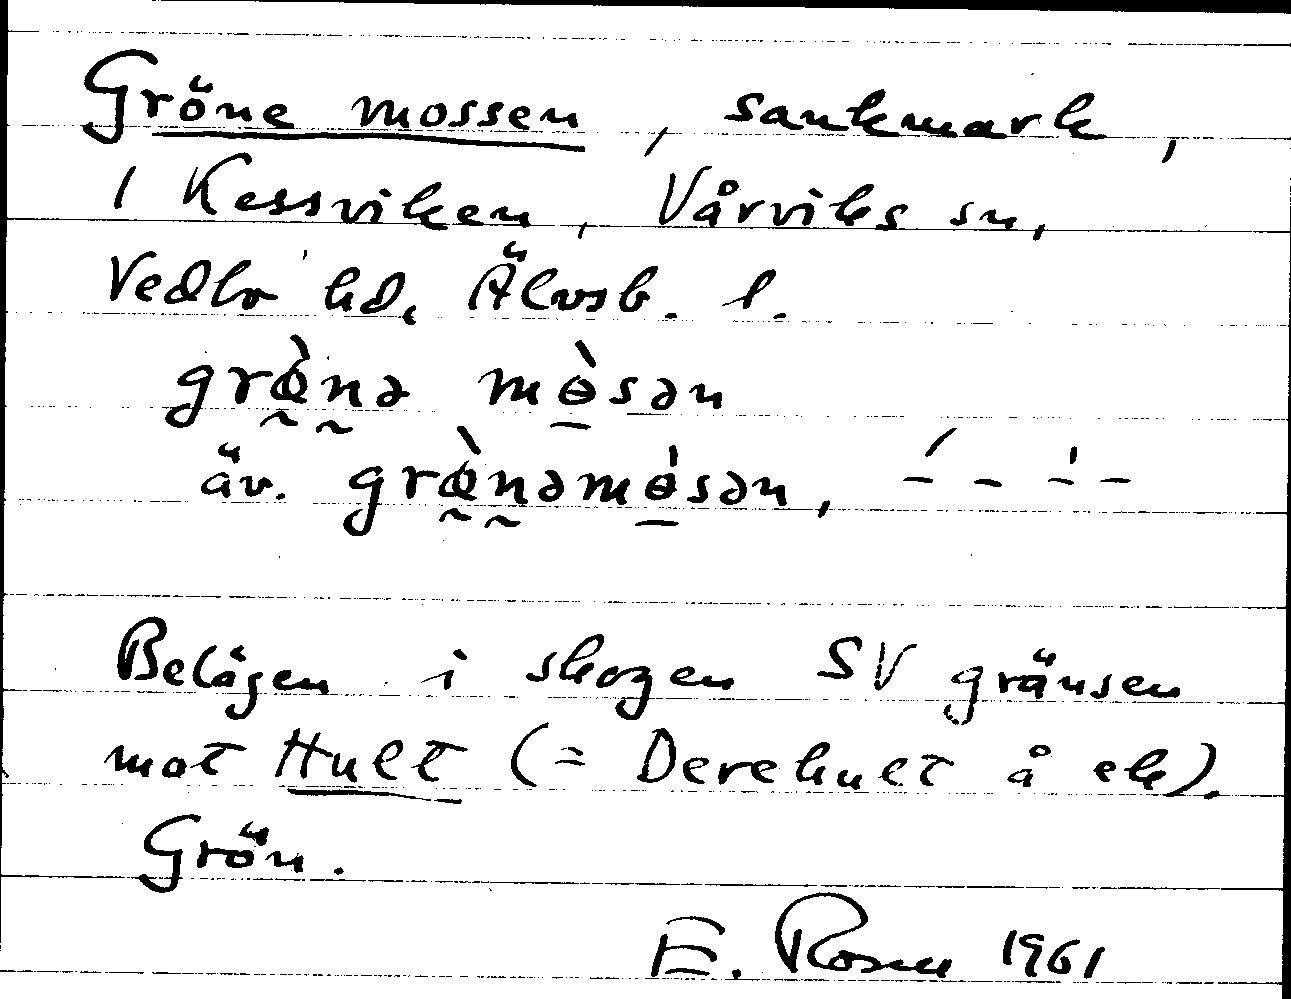 Gröne mossen, sankmark,
i Kessviken, Vårviks sn,
Vedbo hd, Älvsb. l.
grœ̀nə mɵ̀sən
äv. grœ̀nəmɵ̍sən, –́ – –̍ –
Belägen i skogen SV gränsen
mot Hult (= Derehult å ek).
Grön.
E. Rosell 1961